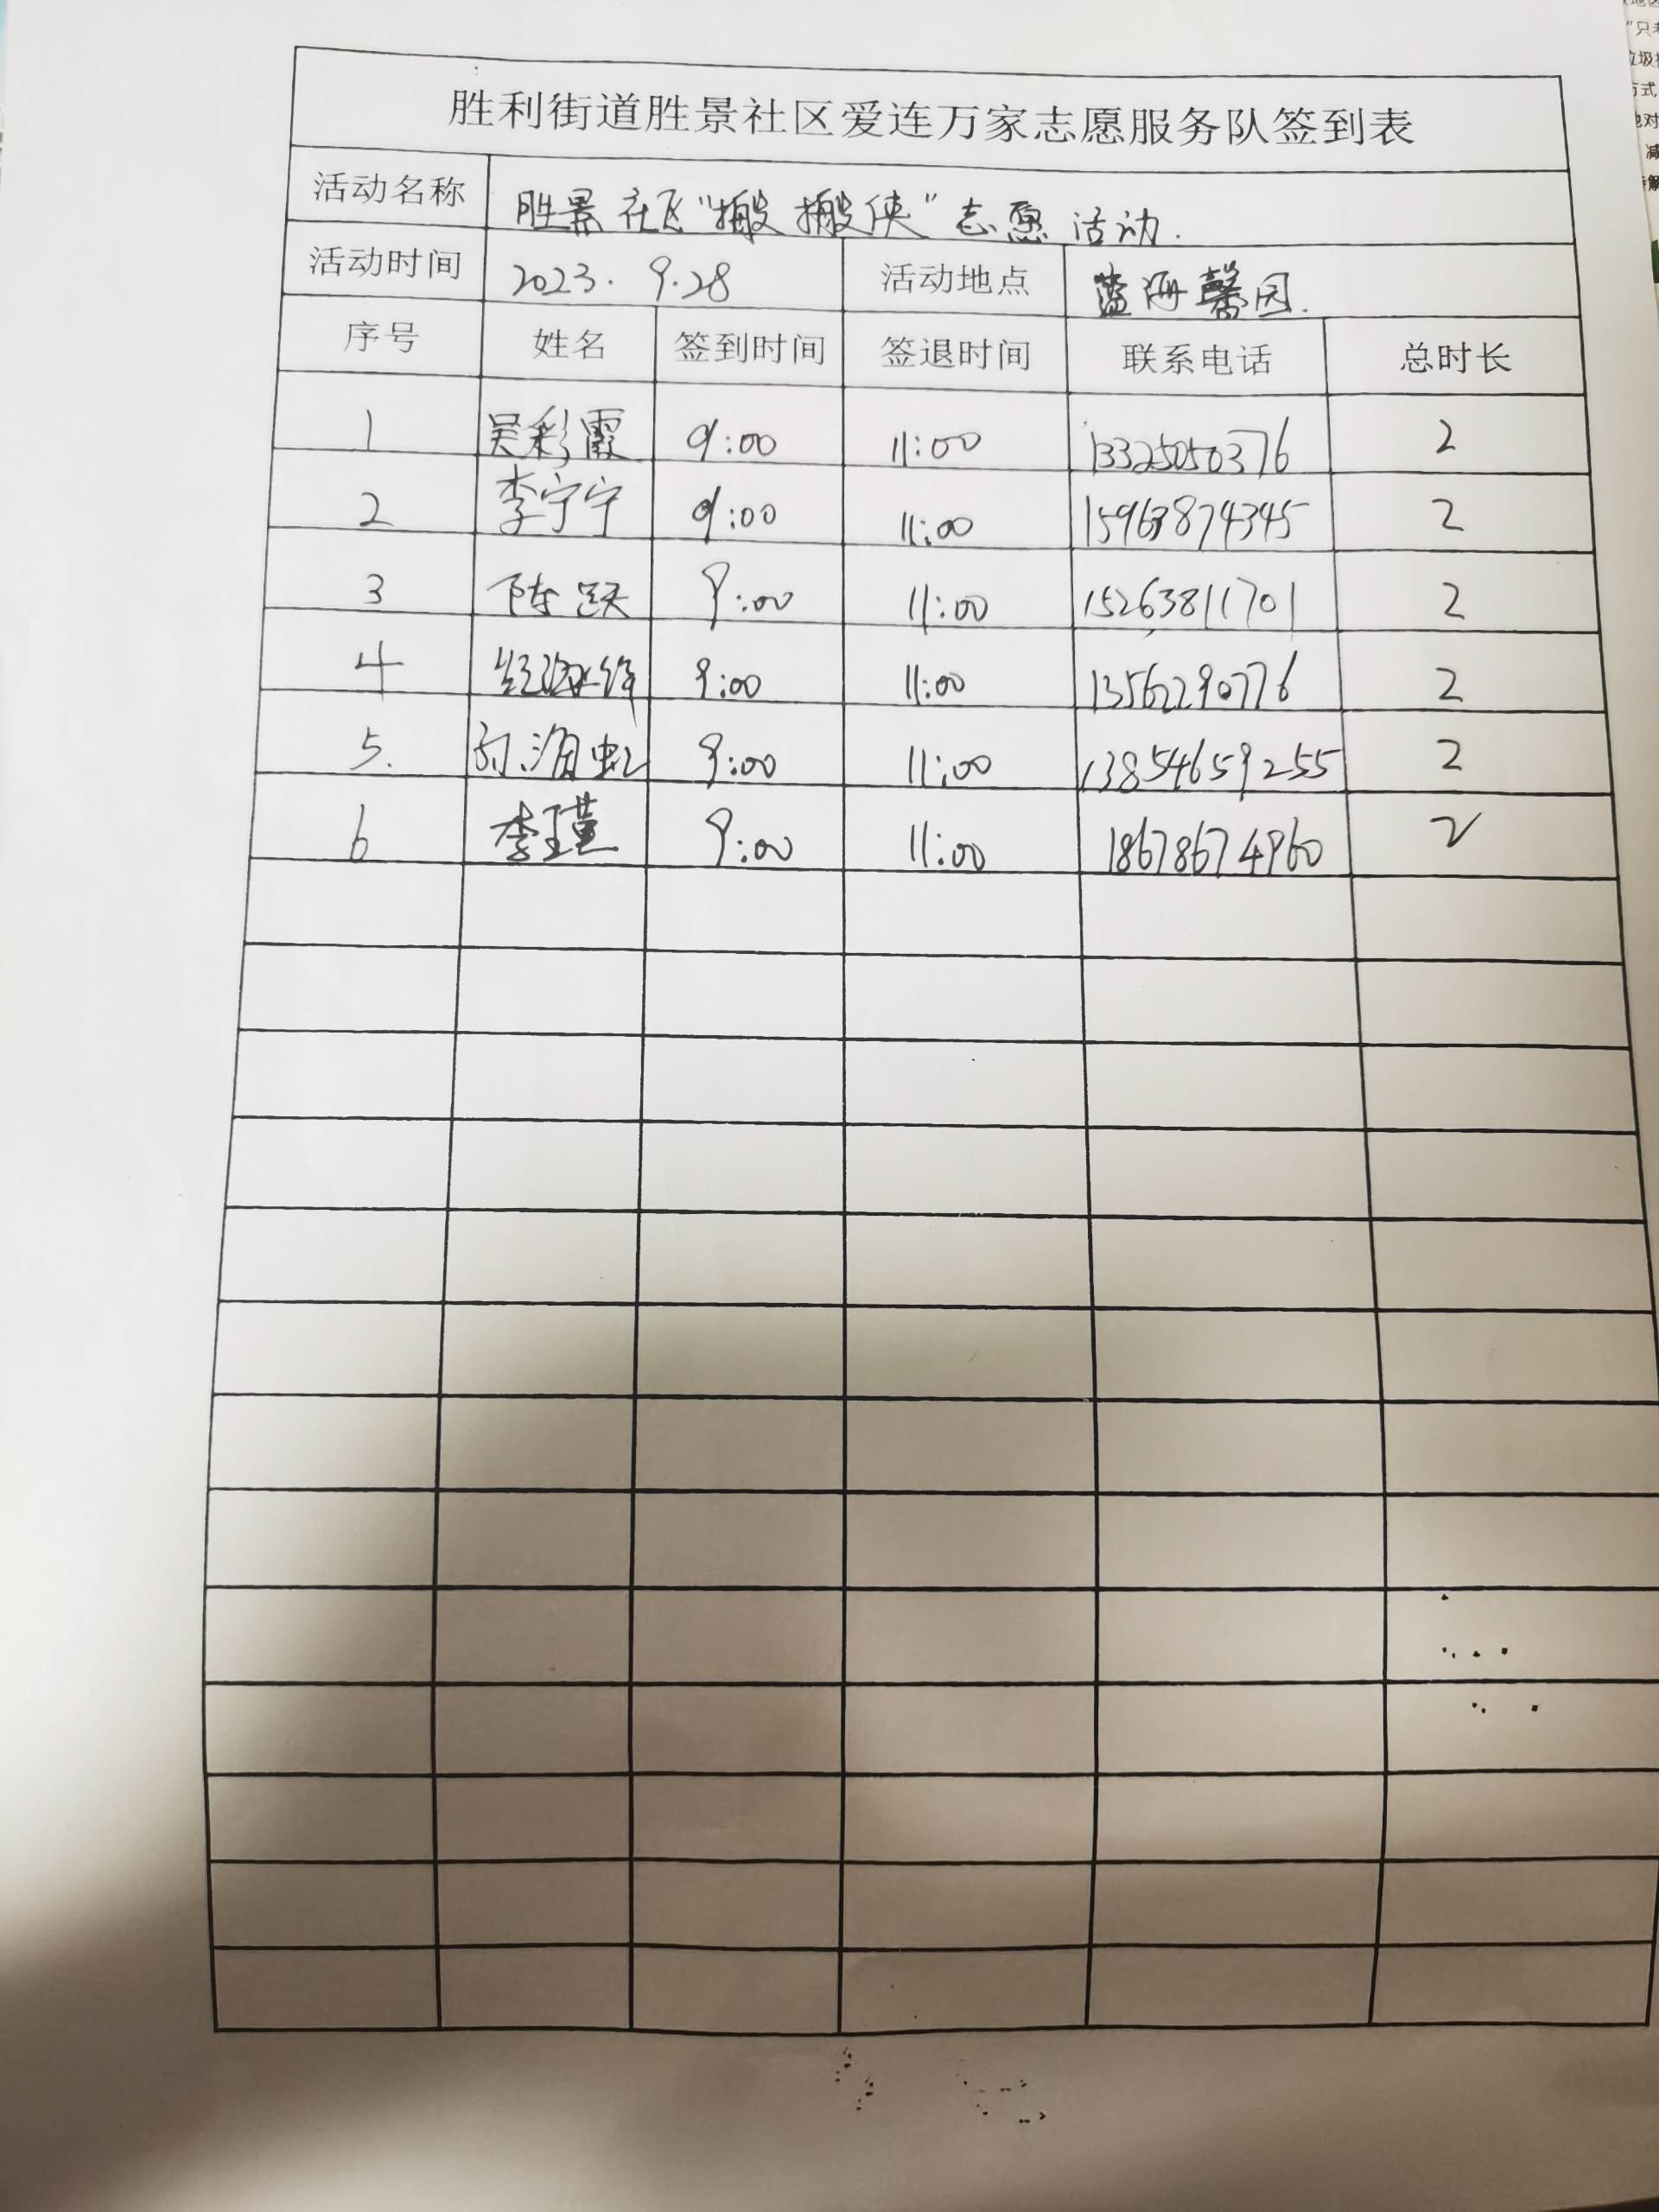 胜利街道胜景社区爱连万家志愿服务队签到表
活动名称 胜景社区"搬搬侠"志愿活动.
活动时间 2023. 9.28 活动地点 蓝海馨园.
序号 姓名 签到时间 签退时间 联系电话 总时长
1 吴彩霞 9:00 11:00 13325050376 2
2 李宁宁 9:00 11:00 15963874345 2
3 陈跃 9:00 11:00 15263811701 2
4 9:00 11:00 13562290776 2
5. 9:00 11:00 13854659255 2
6 李瑾 9:00 11:00 18678674960 2